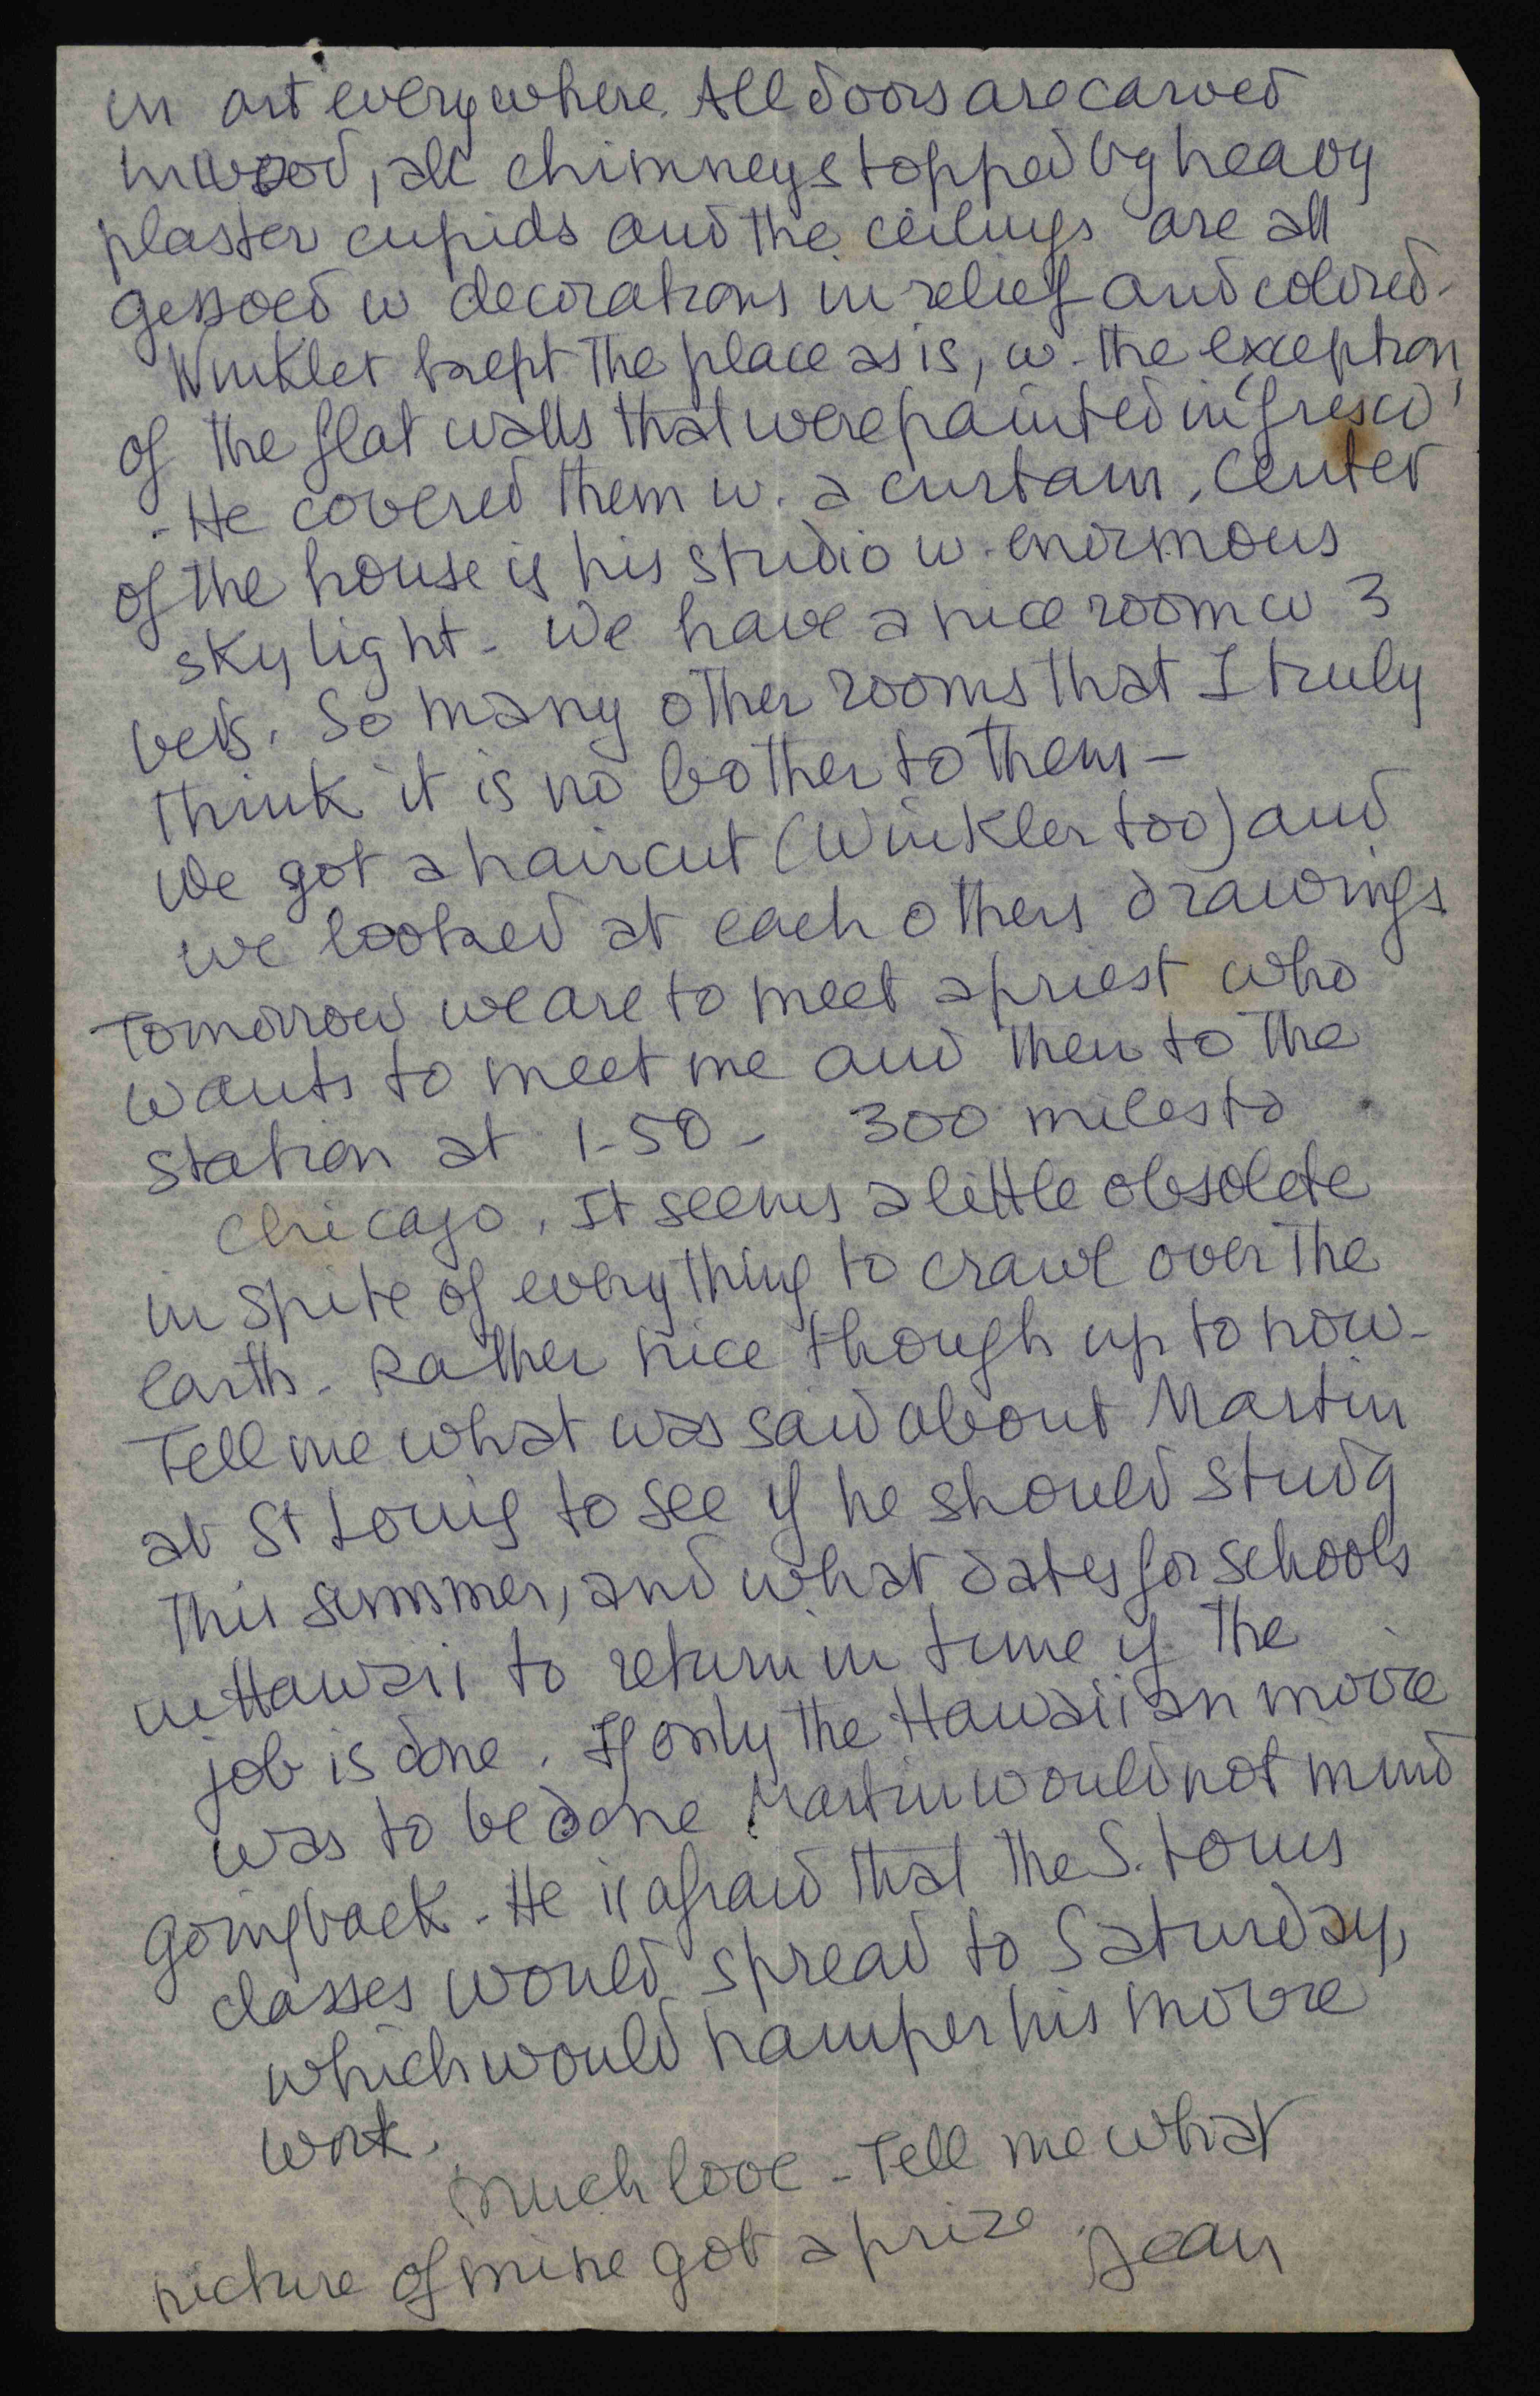 in art everywhere. All doors are carved
in wood, all chimneys topped by heavy
plaster cupids and the ceilings are all
gessoed w decorations in relief and colored.
Winkler kept the place as is, w. the exception
of the flat walls that were painted in 'fresco'
- He covered them w. a curtain. Center
of the house is his studio w. enormous
sky light - We have a nice room w 3
beds. So many other rooms that I truly
think it is no bother to them -
We got a haircut (Winkler too) and
we looked at each others drawings
Tomorrow we are to meet a priest who
wants to meet me and then to the
station at 1-50 - 300 miles to
Chicago. It seems a little obsolete
in spite of everything to crawl over the
earth - Rather nice though up to now -
Tell me what was said about Martin
at St Louis to see if he should study
this summer, and what dates for schools
in Hawaii to return in time if the
job is done. If only the Hawaiian movie
was to be done Martin would not mind
going back - He is afraid that the S. Louis
classes would spread to Saturday,
which would hamper his movie
work.
Much love - Tell me what
picture of mine got a prize Jean